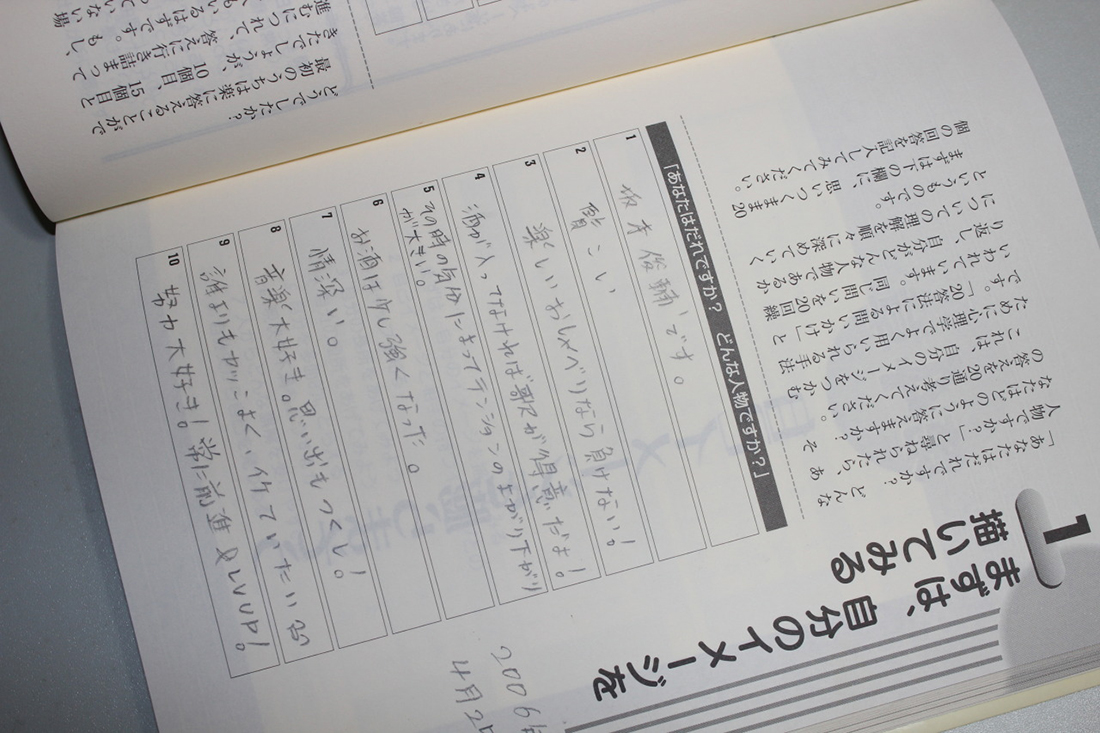 1
まずは、自分のイメージを
描いてみる
「あなたはだれですか? どんな
人物ですか?」と尋ねられたら、あ
なたはどのように答えますか? そ
の答えを20通り考えてください。
これは、自分のイメージをつかむ
ために心理学でよく用いられる手法
です。「20答法による問いかけ」と
いわれています。同じ問いを20回繰
り返し、自分がどんな人物であるか
についての理解を順々に深めていく
というものです。
まずは下の欄に、思いつくまま20
個の回答を記入してみてください。
2006年
4月2
「あなたはだれですか? どんな人物ですか?」
1 坂本俊輔です。
2 賢こい
3 楽しいおしゃべりなら負けない!
4 酒が入ってなければ歌が得意だよ!
5 その時の気分によってテンションの上がり下がり
が大きい。
6 お酒は少し強くなった。
7 情深い。
8 音楽大好き。思い出もつくし!
9 誰よりもカッコよく、イケていたい
10 努力大好き! 常に前進&LvUP!
どうでしたか?
最初のうちは楽に答えることがで
きたでしょうが、10個目、15個目と
進むにつれて、答えに行き詰まって
もいるはずです。もし、